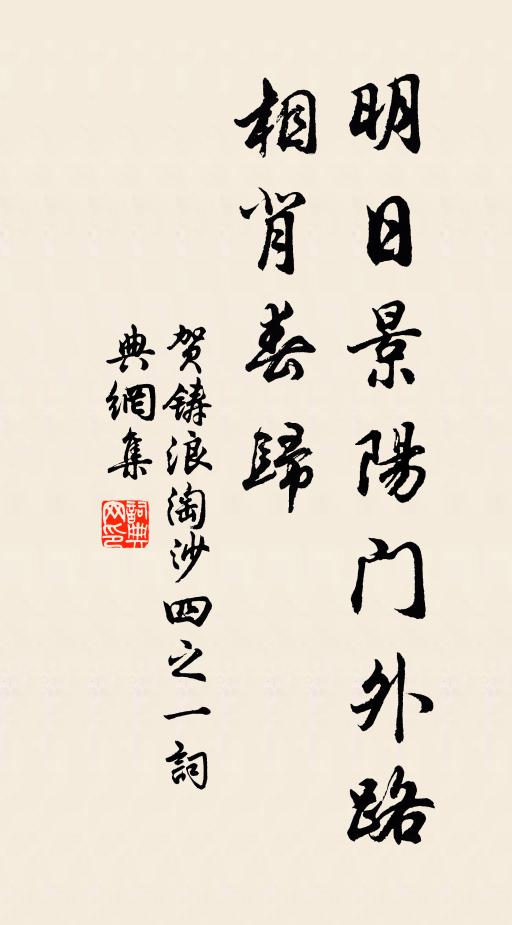 明日景陽门外路
相背春歸
贺鑄浪淘沙四之一詞
典網集
詞典网印